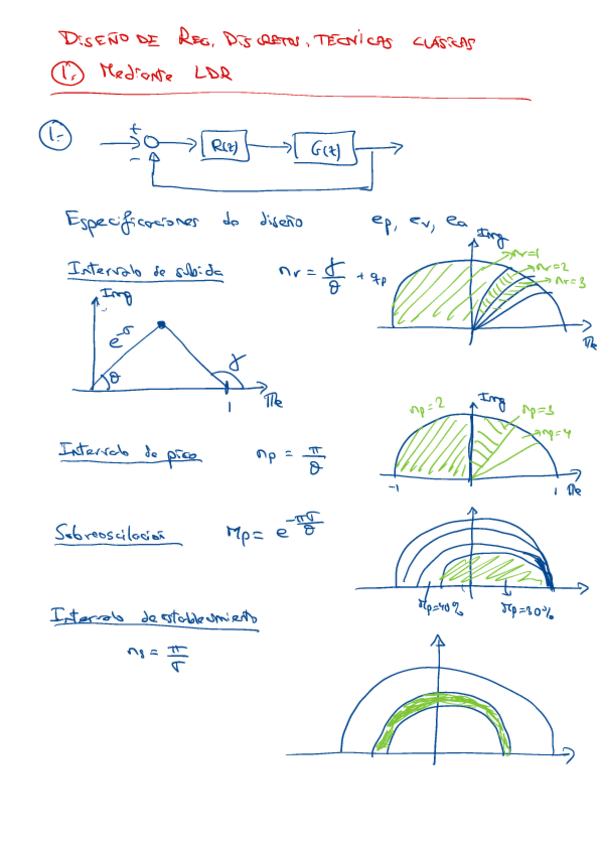 DISEÑO DE REG. DISCRETOS, TÉCNICAS CLÁSICAS
1. Mediante LDR
1.-
+
-
R(z)
G(z)
Especificaciones de diseño ep, ev, ea
Intervalo de subida nr = γ/θ + qp
Img
nr=1
nr=2
nr=3
Re
Img
e^-σ
θ
γ
1
Re
Intervalo de pico np = π/θ
np=2
Img
np=3
np=4
-1
1
Re
Sobreoscilación Mp = e^-πσ/θ
Mp=40%
Intervalo de establecimiento
ns = π/σ